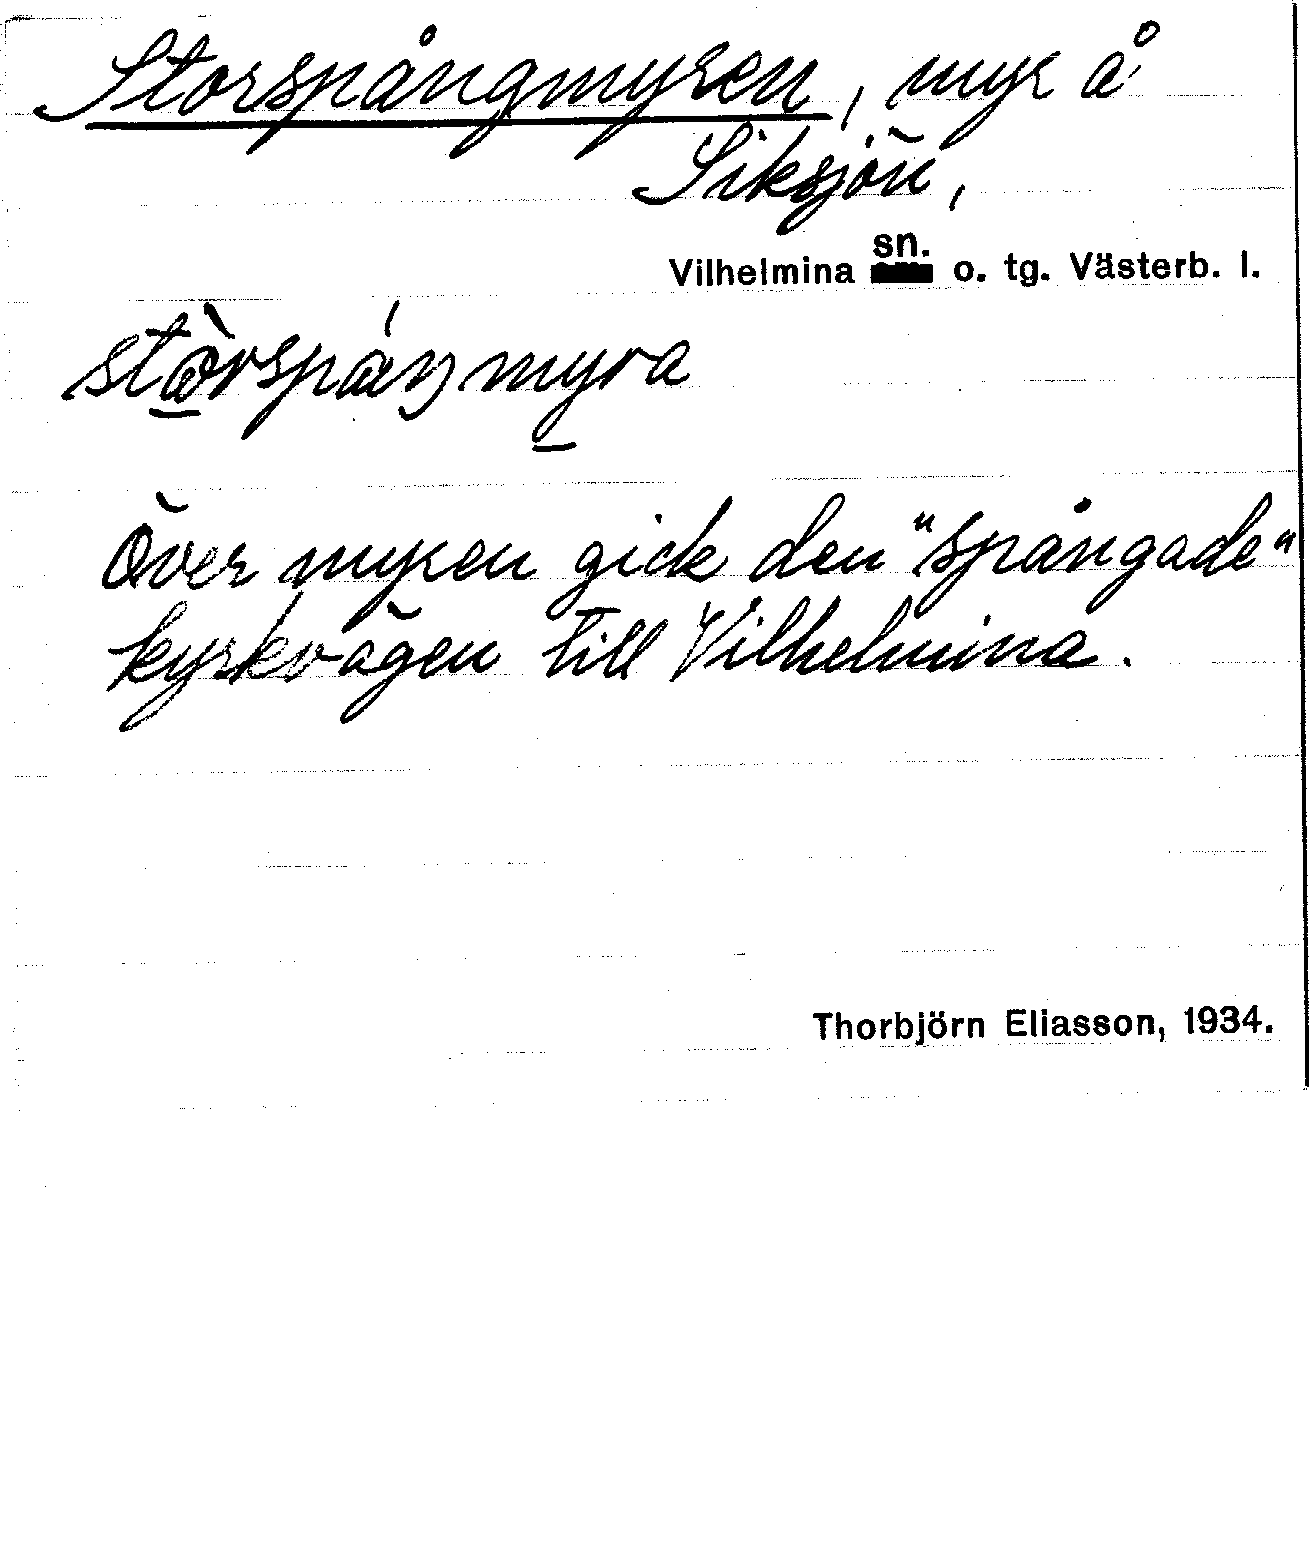 Storspångmyren, myr å
Siksjön,
Vilhelmina sn. o. tg. Västerb. l.
stòrspáŋmyra
Över myren gick den "spångade"
kyrkvägen till Vilhelmina.
Thorbjörn Eliasson, 1934.